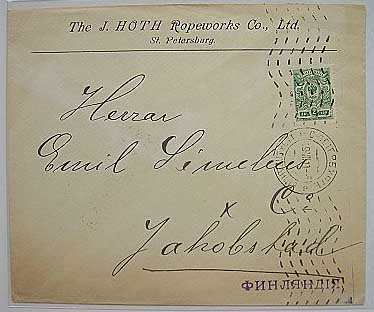 The J. HOTH Ropeworks Co., Ltd.
St. Petersburg.
Herrar
Emil Simelius
Co
Jakobstad
ФИНЛЯНДІЯ